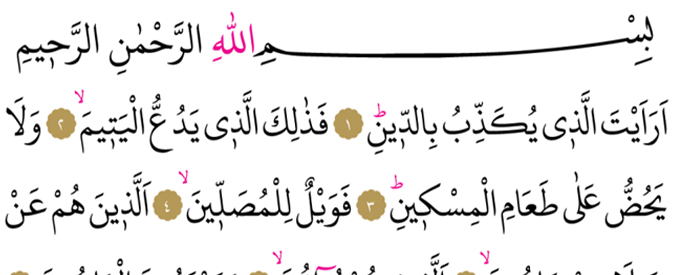 بِسْمِ اللّٰهِ الرَّحْمٰنِ الرَّح۪يمِ
اَرَاَيْتَ الَّذ۪ي يُكَذِّبُ بِالدّ۪ينِۜ ﴿١﴾ فَذٰلِكَ الَّذ۪ي يَدُعُّ الْيَت۪يمَۙ ﴿٢﴾ وَلَا
يَحُضُّ عَلٰى طَعَامِ الْمِسْك۪ينِۜ ﴿٣﴾ فَوَيْلٌ لِلْمُصَلّ۪ينَۙ ﴿٤﴾ اَلَّذ۪ينَ هُمْ عَنْ